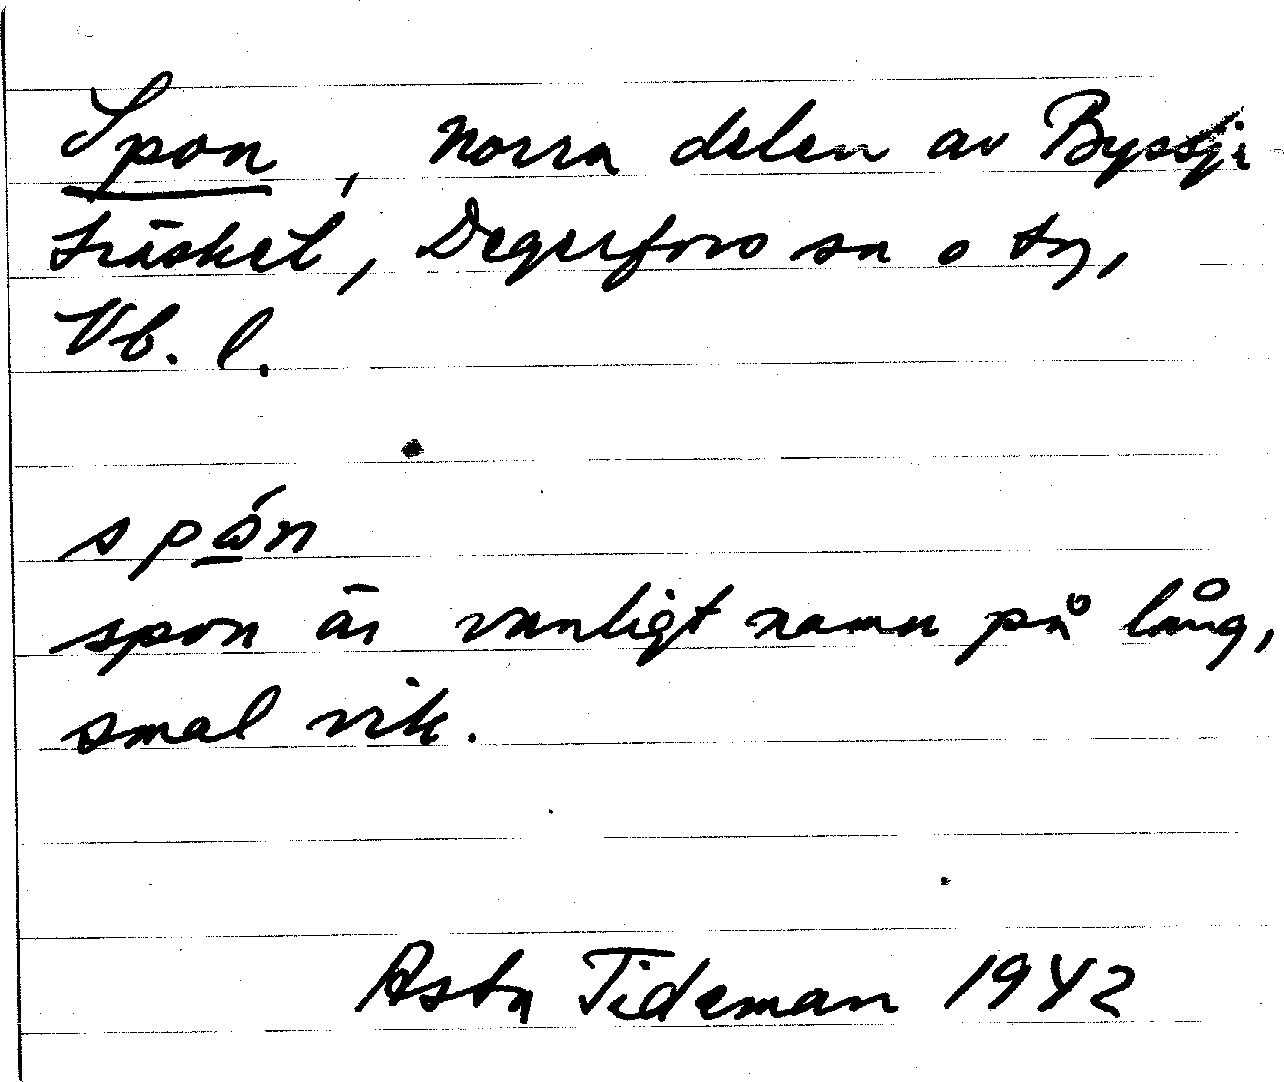 Spon, norra delen av Byssji
träsket, Degerfors sn o tg,
Vb. l.
spån
spon är vanligt namn på lång,
smal vik.
Asta Tideman 1942